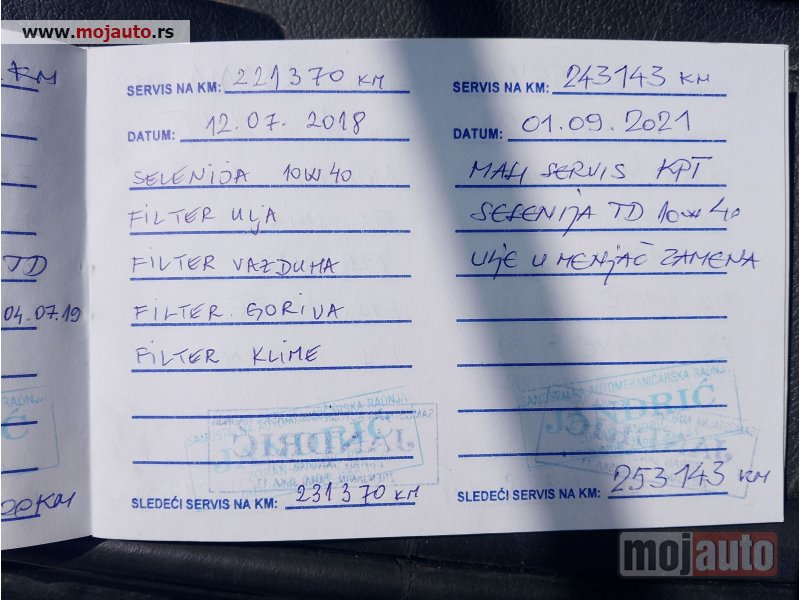 www.mojauto.rs
KM
TD
04.07.19
KM
SERVIS NA KM: 221370 KM
DATUM: 12.07.2018
SELENIJA 10W40
FILTER ULJA
FILTER VAZDUHA
FILTER GORIVA
FILTER KLIME
JANDRIĆ
SLEDEĆI SERVIS NA KM: 231370 KM
SERVIS NA KM: 243143 KM
DATUM: 01.09.2021
MALI SERVIS KPT
SELENIJA TD 10W40
ULJE U MENJAČ ZAMENA
AUTOMEHANIČARSKA RADNJA
JANDRIĆ
SLEDEĆI SERVIS NA KM: 253143 KM
mojauto